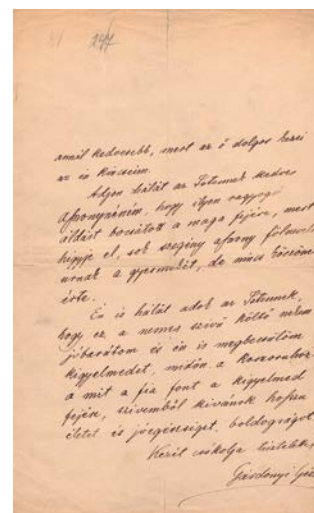 247
annál kedvesebb, mert az ő dolgos kezei
az én kincseim.
Adjon hálát az Istennek kedves
asszonynéném, hogy ilyen ragyogó
áldást bocsátott a maga fejére, mert
higyje el, sok szegény asszony fölneveli
urnak a gyermekét, de nincs köszönet
érte.
Én is hálát adok az Istennek,
hogy ez a nemes szivű költő nekem
jóbarátom és én is megbecsülöm
kegyelmedet, midőn a koszoruhoz
a mit a fia font a kegyelmed
fejére, szivemből kivánok hosszu
életet és jó egészséget, boldogságot
Kezit csókolja tisztelete,
Gárdonyi Géza